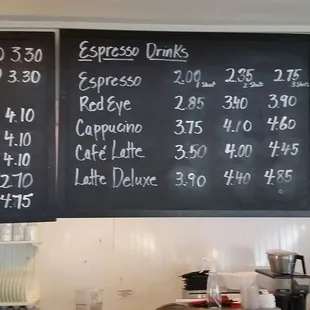 3.30
3.30
4.10
4.10
4.10
2.70
4.75
Espresso Drinks
Espresso 2.00 2.35 2.75
1 Shot 2 Shots 3 Shots
Red Eye 2.85 3.40 3.90
Cappucino 3.75 4.10 4.60
Café Latte 3.50 4.00 4.45
Latte Deluxe 3.90 4.40 4.85